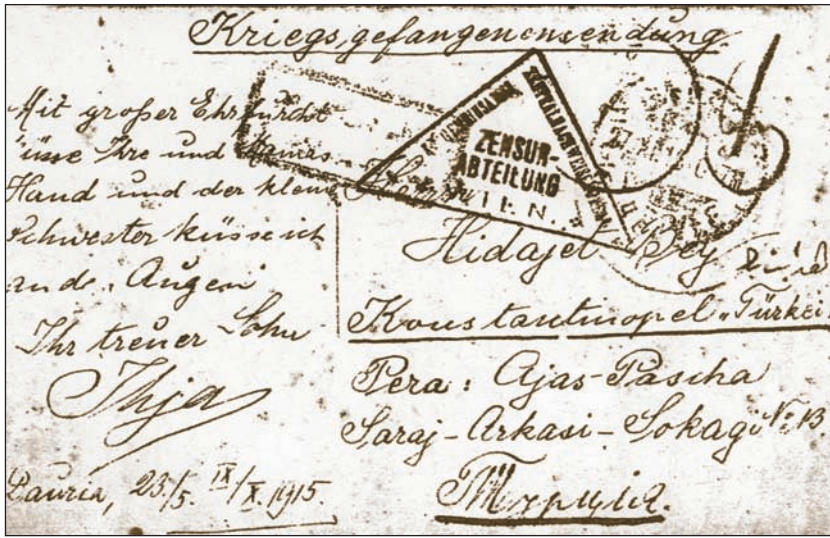 Kriegsgefangenensendung.
Mit großer Ehrfurcht
küsse Ihre und Mamas
Hand und der kleine
Schwester küsse ich
an de. Augen
Ihr treuer Sohn
Ihja
Dauria, 23./5. IX/X. 1915.
ZENSUR-
ABTEILUNG
WIEN.
Herrn
Hidajet Bey
Konstantinopel „Türkei
Pera: Ajas-Pascha
Saraj-Arkasi-Sokagi № 13
Турція.